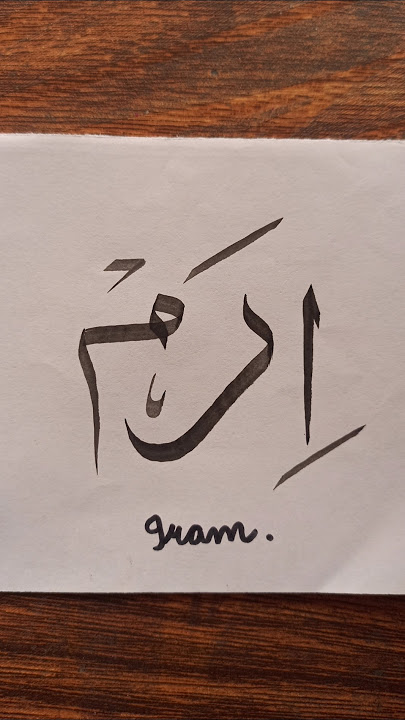 اِرَمْ
Iram.